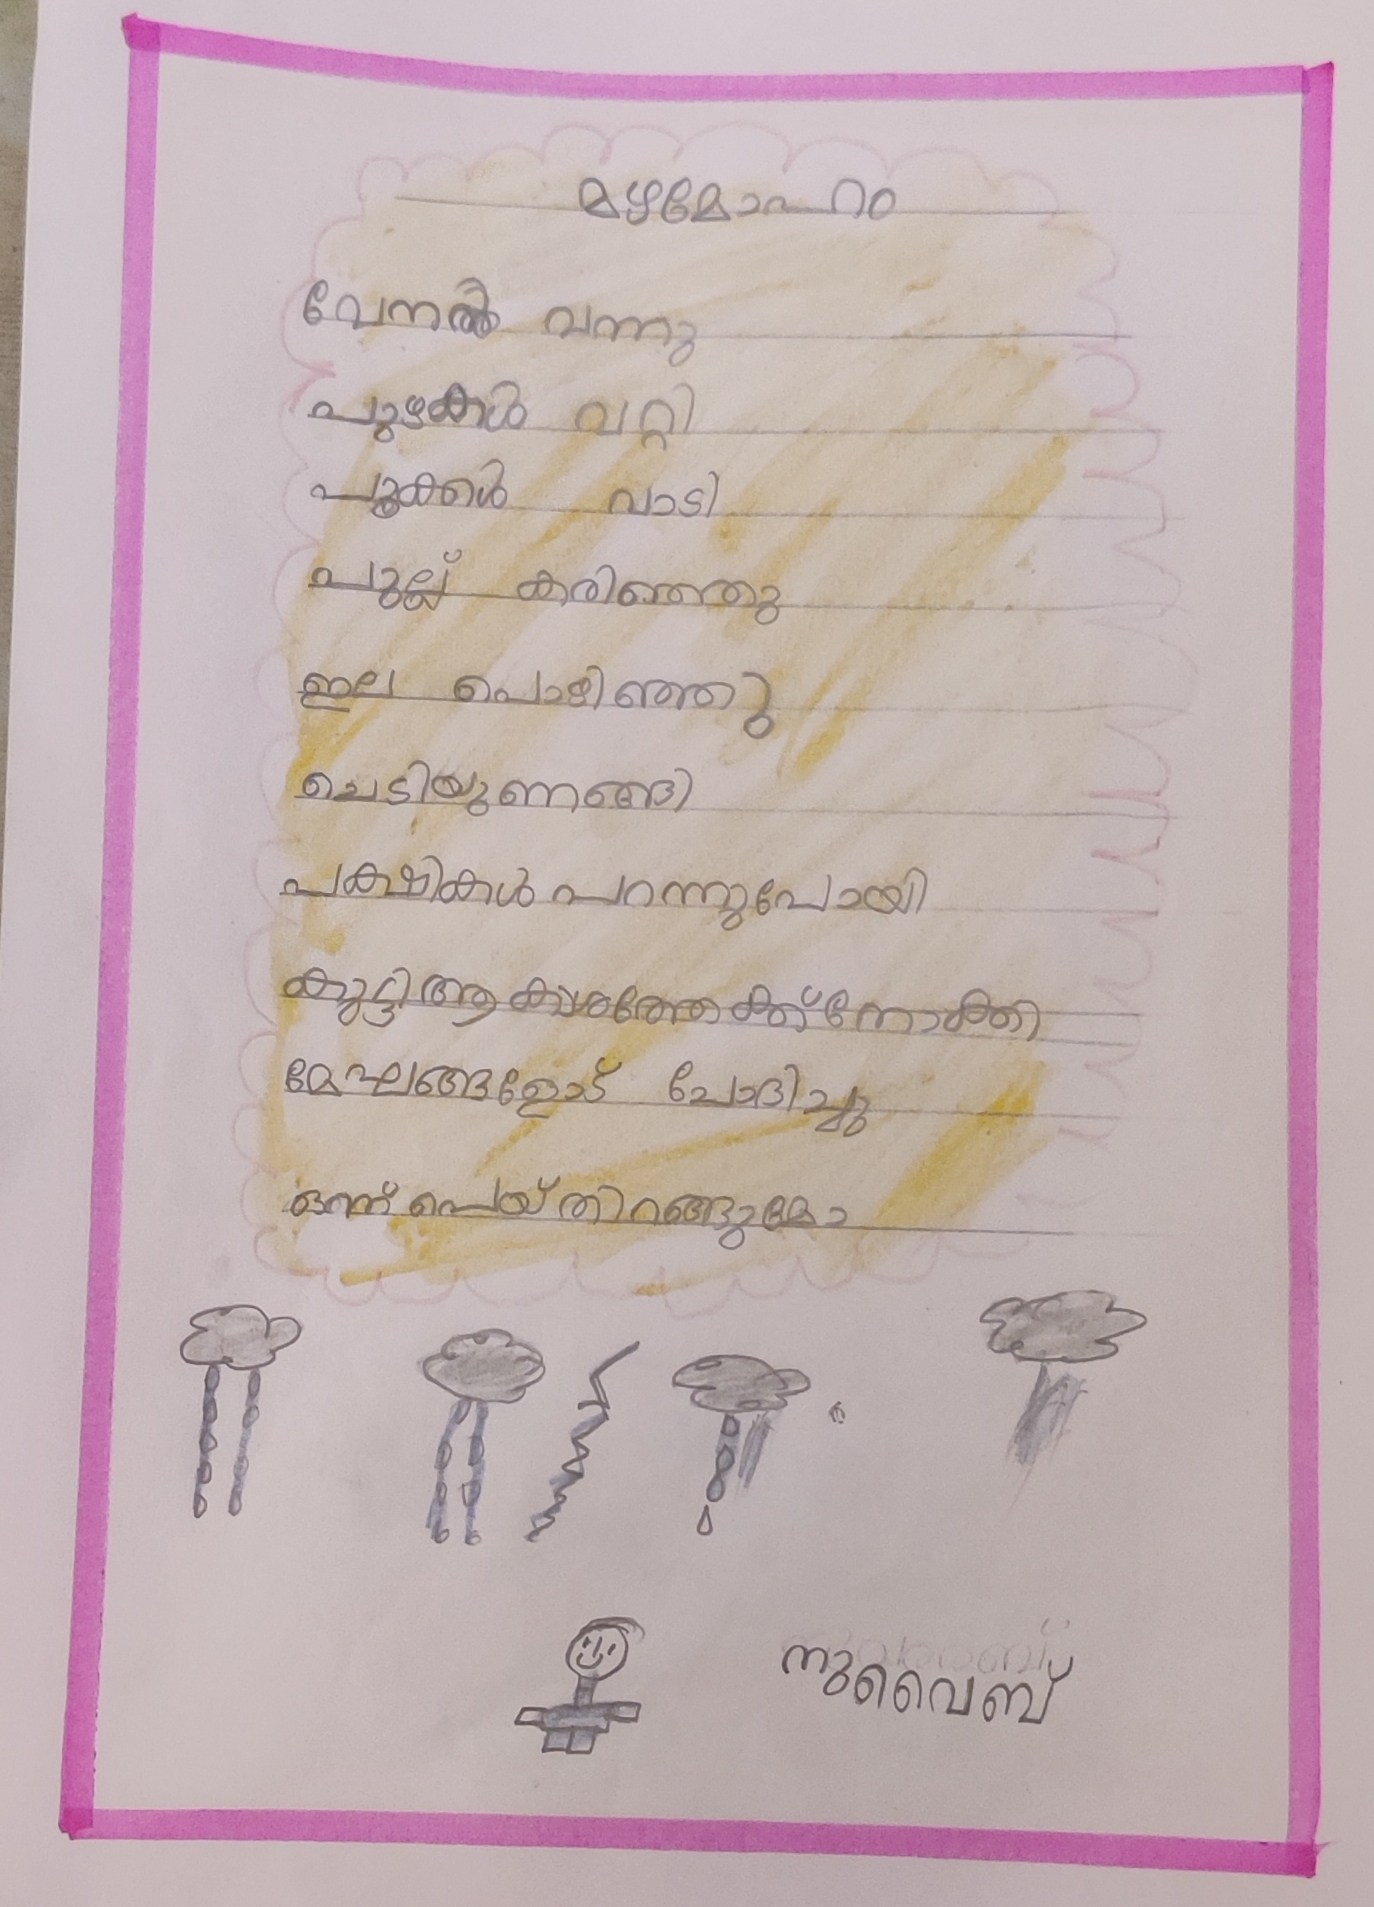 മഴമോഹം
വേനൽ വന്നു
പുഴകൾ വറ്റി
പൂക്കൾ വാടി
പുല്ല് കരിഞ്ഞു
ഇല പൊഴിഞ്ഞു
ചെടിയുണങ്ങി
പക്ഷികൾ പറന്നുപോയി
കുട്ടി ആകാശത്തേക്ക് നോക്കി
മേഘങ്ങളോട് ചോദിച്ചു
ഒന്ന് പെയ്തിറങ്ങുമോ
നുവൈബ്